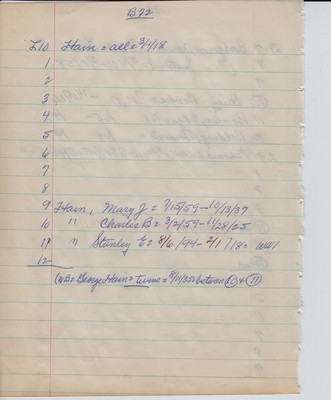 B22
L10 Hain = all = 3/4/18
1
2
3
4
5
6
7
8
9 Hain, Mary J = 7/15/59 - 10/13/37
10 " Charles B = 3/2/59 - 11/28/05
11 " Stanley E = 8/6/94 - 2/1/18 = WW1
12
(NB = George Hain = twins = 8/11/35 = between 10 + 11)